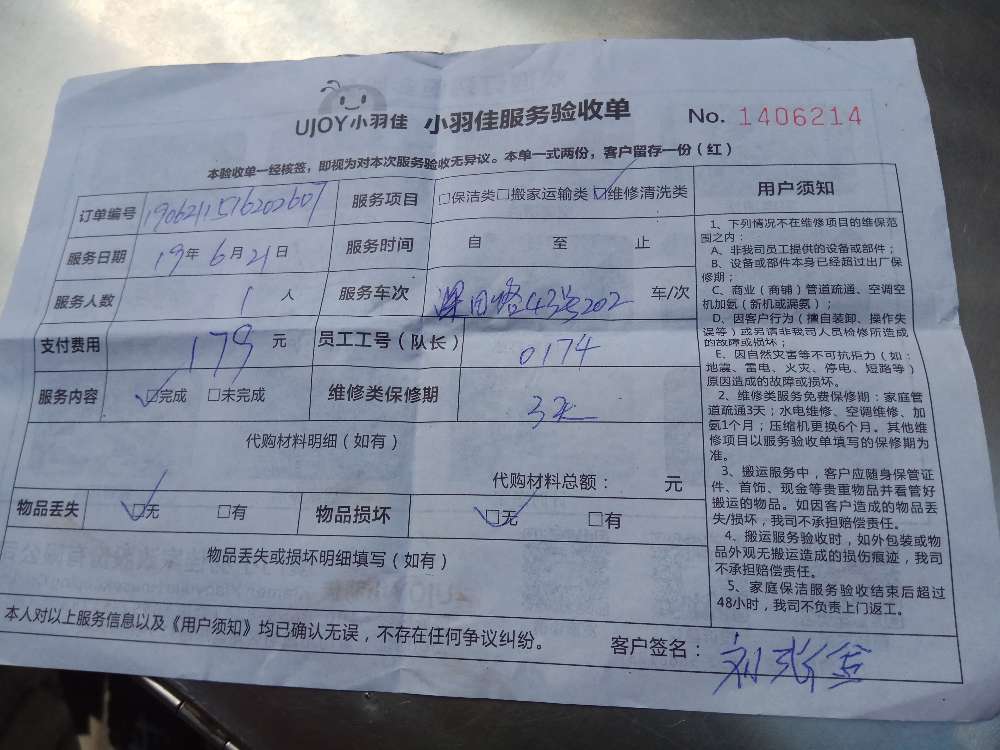 UJOY小羽佳 小羽佳服务验收单 No. 1406214
本验收单一经核签，即视为对本次服务验收无异议。本单一式两份，客户留存一份（红）
订单编号 1906211516202607 服务项目 □保洁类□搬家运输类☑维修清洗类
服务日期 19年6月21日 服务时间 自 至 止
服务人数 1 人 服务车次 田路43号202 车/次
支付费用 179 元 员工工号（队长） 0174
服务内容 ☑完成 □未完成 维修类保修期 3天
代购材料明细（如有）
代购材料总额： 元
物品丢失 ☑无 □有 物品损坏 ☑无 □有
物品丢失或损坏明细填写（如有）
本人对以上服务信息以及《用户须知》均已确认无误，不存在任何争议纠纷。
客户签名： 刘
用户须知
1、下列情况不在维修项目的维保范
围之内：
A、非我司员工提供的设备或部件；
B、设备或部件本身已经超过出厂保
修期；
C、商业（商铺）管道疏通、空调空
机加氨（新机或漏氨）；
D、因客户行为（擅自装卸、操作失
误等）或另请非我司人员检修所造成
的故障或损坏；
E、因自然灾害等不可抗拒力（如：
地震、雷电、火灾、停电、短路等）
原因造成的故障或损坏。
2、维修类服务免费保修期：家庭管
道疏通3天；水电维修、空调维修、加
氨1个月；压缩机更换6个月。其他维
修项目以服务验收单填写的保修期为
准。
3、搬运服务中，客户应随身保管证
件、首饰、现金等贵重物品并看管好
搬运的物品。如因客户造成的物品丢
失/损坏，我司不承担赔偿责任。
4、搬运服务验收时，如外包装或物
品外观无搬运造成的损伤痕迹，我司
不承担赔偿责任。
5、家庭保洁服务验收结束后超过
48小时，我司不负责上门返工。